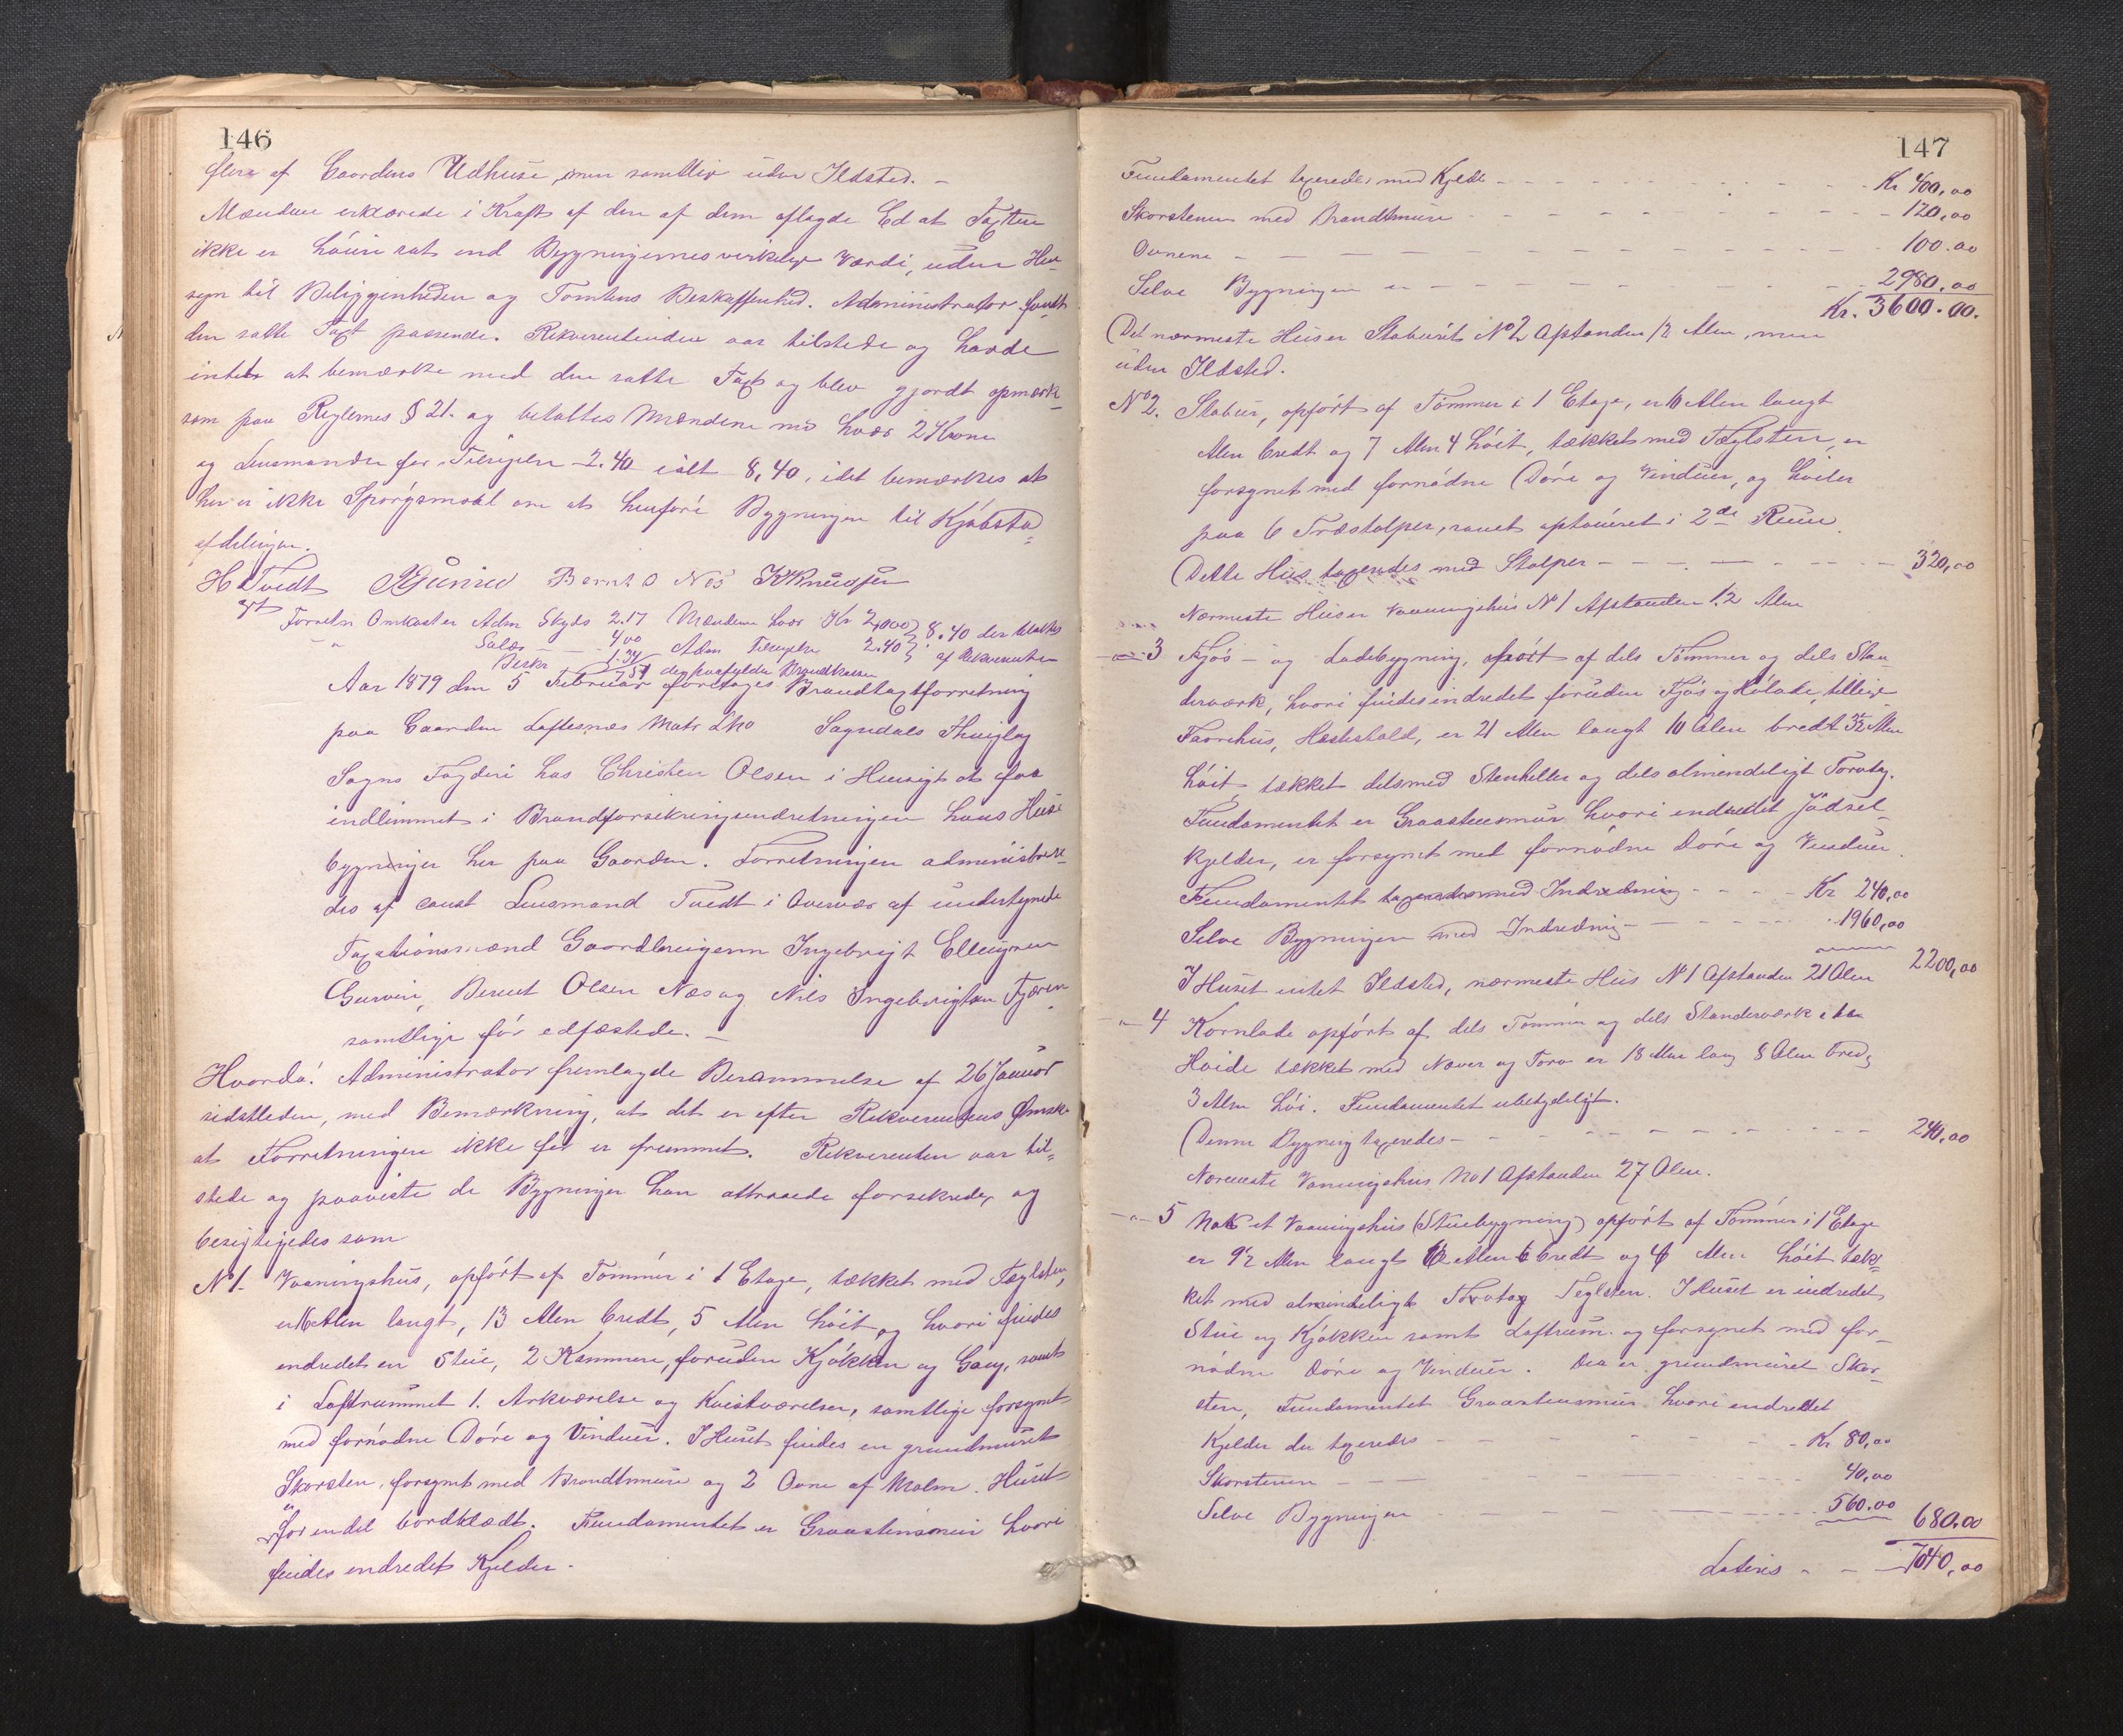 146
flere af Gaardens Udhuse, men samtlig uden Ildsted. –
Mændene erklærede i Kraft af den af dem aflagde Ed at Taxten
ikke er høiere sat end Bygningernes virkelige Værdi, uden Hen-
syn til Beliggenheden og Tomtens Beskaffenhed. Administrator fandt
den satte Taxt passende. Rekverentinden var tilstede og havde
intet at bemærke med den satte Taxt og blev gjordt opmærk-
som paa Reglernes § 21. og betaltes Mændene med hver 2 Krone
og Lensmanden for Tilsigelse 2.40 ialt 8,40, idet bemærkes at
her er ikke Spørgsmaal om at henføre Bygningen til Kjøbstad
afdelingen.
H Tvedt Bernt O Nes K Knudsen
Forretn Omkoster Adm Skyds 2.17 Mændene hver Kr 2,000 8.40 der betaltes
" Salær 4,00 Adm Tilsigelse 2.40 af Rekverenten
Beskr 1.34
7.51
Aar 1879 den 5 Februar foretoges Brandtaxtforretning
paa Gaarden Loftesnæs Matr Lno Sogndals Thinglag
Sogns Fogderi hos Christen Olsen i Henseigt at faa
indlemmet i Brandforsikringsindretningen hans Huse
bygninger her paa Gaarden. Forretningen administrere-
des af const Lensmand Tvedt i Overvær af undertegnede
Taxationsmænd Gaardbrugerne Ingebrigt Ellingsen
Gurvin, Berent Olsen Næs og Nils Ingebrigtsen Fjæren
samtlige før edfæstede. –
Hvorda! Administrator fremlagde Berammelse af 26 Januar
sidstleden, med Bemærkning, at det er efter Rekverentens Ønske
at Forretningen ikke før er fremmet. Rekverenten var til-
stede og paaviste de Bygninger han attraaede forsikrede, og
besigtigedes som
No 1. Vaaningshus, opført af Tømmer i 1 Etage, tækket med Teglsten,
er 16 Alen langt, 13 Alen bredt, 5 Alen høit, og hvori findes
endredet en Stue, 2 Kammere, foruden Kjøkken og Gang, samt
i Loftrummet 1. Arkværelse og Kvistværelser, samtlige forsynet
med fornødne Døre og Vinduer. I Huset findes en grundmuret
Skorsten, forsynet med Brandtmure og 2 Ovne af Malm. Huset
er for endel bordklædt. Fundamentet er Graastensmur hvori
findes endredet Kjelder.
147
Fundamentet taxeredes med Kjelder Kr 400,00
Skorstenen med Brandtmure 120,00
Ovnene 100.00
Selve Bygningen er 2980,00
Kr. 3600.00.
Det nærmeste Hus er Staburet No 2 Afstanden 12 Alen, men
uden Ildsted.
No 2. Stabur, opført af Tømmer i 1 Etage, er 6 Alen langt
Alen bredt og 7 Alen 4 høit, tækket med Teglsten, er
forsynet med fornødne Døre og Vinduer, og hviler
paa 6 Træstolper, samt i 2de Rum.
Dette Hus taxeredes med Stolper 320,00
Nærmeste Hus er Vaaningshus No 1 Afstanden 12 Alen
" 3 Fjøs- og Ladebygning, opført af dels Tømmer og dels Stan-
derværk, hvori findes indredet foruden Fjøs og Hølade, tillige
Faarehus, Hestestald, er 21 Alen langt 10 Alen bredt 3½ Alen
høit, tækket dels med Stenheller og dels almendeligt Torvtag.
Fundamentet er Graastensmur hvori endredet Gjødsel-
kjelder, er forsynet met fornødne Døre og Vinduer.
Fundamentet taxeredes med Indredning Kr 240,00
Selve Bygningen med Indredning 1960,00
2200,00
I Huset intet Ildsted, nærmeste Hus No 1 Afstanden 21 Alen
" 4 Kornlade opført af dels Tømmer og dels Standerværk
tækket med Næver og Torv er 13 Alen lang 8 Alen bred,
3 Alen høi. Fundamentet ubetydeligt.
Denne Bygning taxeredes 240,00
Nærmeste Vaaningshus No 1 Afstanden 27 Alen.
" 5 Nok et Vaaningshus (Stuebygning) opført af Tømmer i 1 Etage
er 9½ Alen langt Alen 6 bredt og 4 Alen høit tæk-
ket med almindeligt Torvtag Teglsten. I Huset er indredet
Stue og Kjøkken samt Loftrum og forsynet med for-
nødne Døre og Vinduer. Der er grundmuret Skor-
sten, Fundamentet Graastensmur hvori endredet
Kjelder der taxeredes Kr 80,00
Skorstenen 40,00
Selve Bygningen 560.00
680.00
Lateris 7040,00